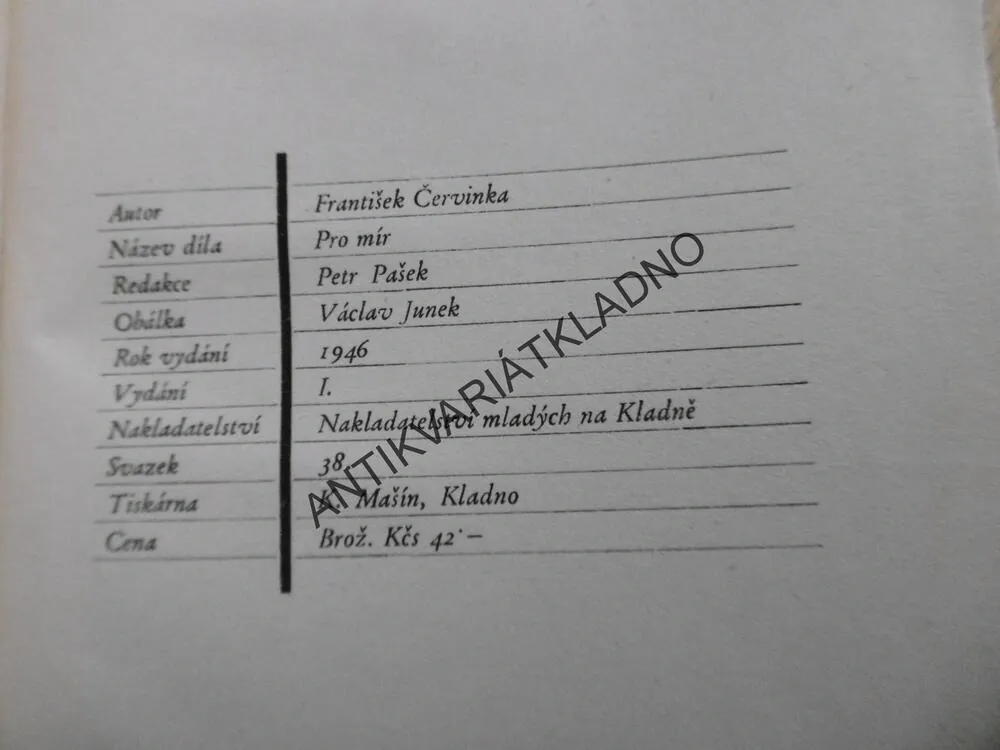 Autor František Červinka
Název díla Pro mír
Redakce Petr Pašek
Obálka Václav Junek
Rok vydání 1946
Vydání I.
Nakladatelství Nakladatelství mladých na Kladně
Svazek 38
Tiskárna K. Mašín, Kladno
Cena Brož. Kčs 42·–
ANTIKVARIÁTKLADNO